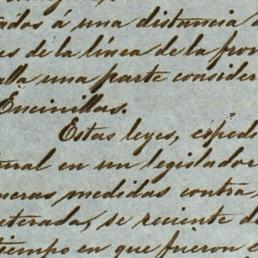 ados a una distancia
es de la línea de la fron
alla una parte consider
Encinillas.
Estas leyes, esped
tural en un legislador
meras medidas contra
eterada, se reciente d
tiempo en que fueron e